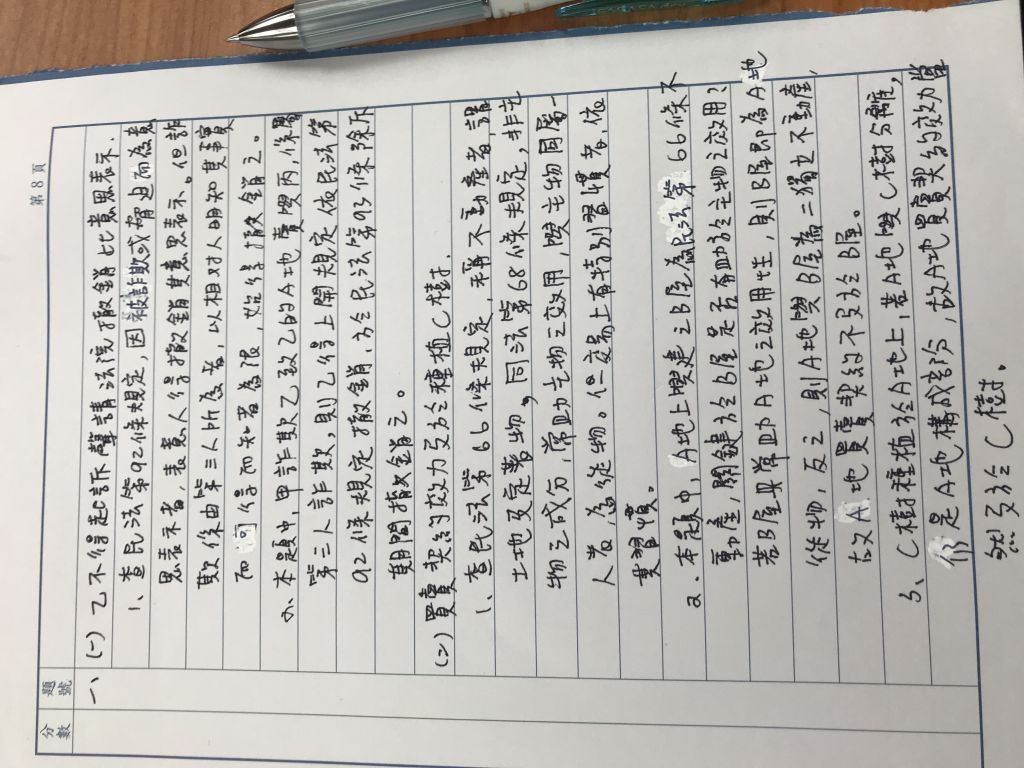 第 8 頁
分數
題號
一、(一) 乙不得起訴聲請法院撤銷此意思表示.
1、查民法第92條規定，因被詐欺或脅迫而為意
思表示者，表意人得撤銷其意思表示。但詐
欺係由第三人所為者，以相對人明知其事實
而可得而知者為限，始得撤銷之。
2、本題中，甲詐欺乙致乙的A地賣與丙，係屬
第三人詐欺，則乙得上開規定依民法第
92條規定撤銷，亦於民法第93條除斥
期間撤銷之。
(二) 買賣契約效力及於種植C樹.
1、查民法第66條規定，稱不動產者，謂
土地及定著物。同法第68條規定，非主
物之成分，常助主物之效用，與主物同屬一
人者，為從物。但交易上有特別習慣者，依
其習慣。
2、本題中，A地上興建之B屋為民法第66條不
動產，關鍵於B屋是否有助於主物之效用？
若B屋具常助A地之效用性，則B屋即為A地
從物，反之，則A地與B屋為二獨立不動產，
故A地買賣契約不及於B屋。
3、C樹種植於A地上，若A地與C樹分離，
仍是A地構成部分，故A地買賣契約效力當
然及於C樹。